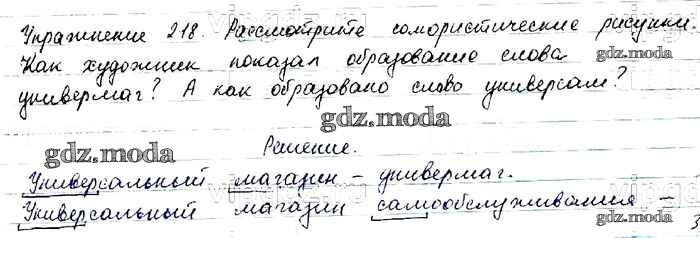 Упражнение 218. Рассмотрите юмористические рисунки.
Как художник показал образование слова
универмаг? А как образовано слово универсам?
gdz.moda
gdz.moda
gdz.moda
Решение.
gdz.moda
Универсальный магазин – универмаг.
Универсальный магазин самообслуживания –
gdz.moda